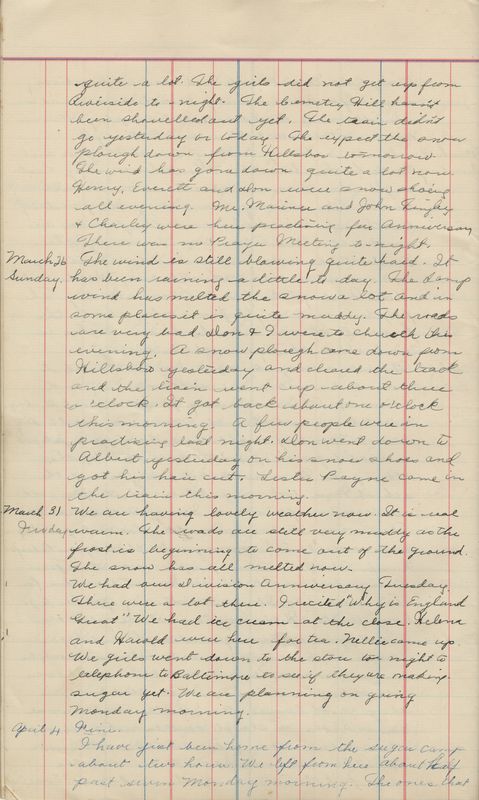 quite a lot. The girls did not get up from
Riverside to night. The Cemetry Hill hasn't
been shovelled out yet. The train didn't
go yesterday or today. The expect the snow
plough down from Hillsboro to-morrow.
The wind has gone down quite a lot now.
Henry, Everett and Don were snow shoeing
all evening. Mr. and John
& Charley were here practising for Anniversary
There was no Prayer Meeting to-night.
March, 26 The wind is still blowing quite hard. It
Sunday. has been raining a little to day. The damp
wind has melted the snow a lot and in
some places it is quite muddy. The roads
are very bad Don & I were to church this
evening. A snow plough came down from
Hillsboro yesterday and cleared the track
and the train went up about three
o'clock. It got back about one o'clock
this morning. A few people were in
practising last night. Don went down to
Albert yesterday on his snow shoes and
got his hair cut. Lester Payne came in
the train this morning.
March 31 We are having lovely weather now. It is real
Friday warm. The roads are still very muddy as the
frost is beginning to come out of the ground.
The snow has all melted now.
We had our Division Anniversary Tuesday.
There were a lot there. I recited "Why is England
Great" We had ice cream at the close. Helena
and Harold were here for tea. Nellie came up.
We girls went down to the store to-night to
telephone to Baltimore to see if they are making
sugar yet. We are planning on going
Monday morning.
April 4 Fine.
I have just been home from the sugar camp
about two hours. We left from here about half
past seven Monday morning. The ones that